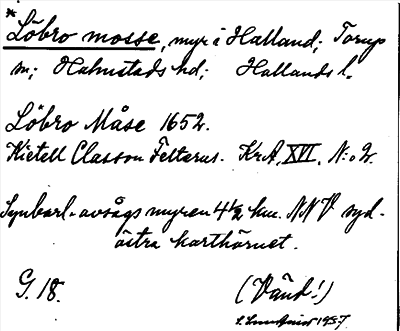 *
Löbro mosse, myr i Halland; Torup
sn; Halmstads hd; Hallands l.
Löbro Måse 1652.
Kietell Classon Felterus. KrA, XVI, N:o 2.
Synbarl. avsågs myren 4½ km. NNV syd-
östra karthörnet.
G. 18.
(Vänd!)
1957